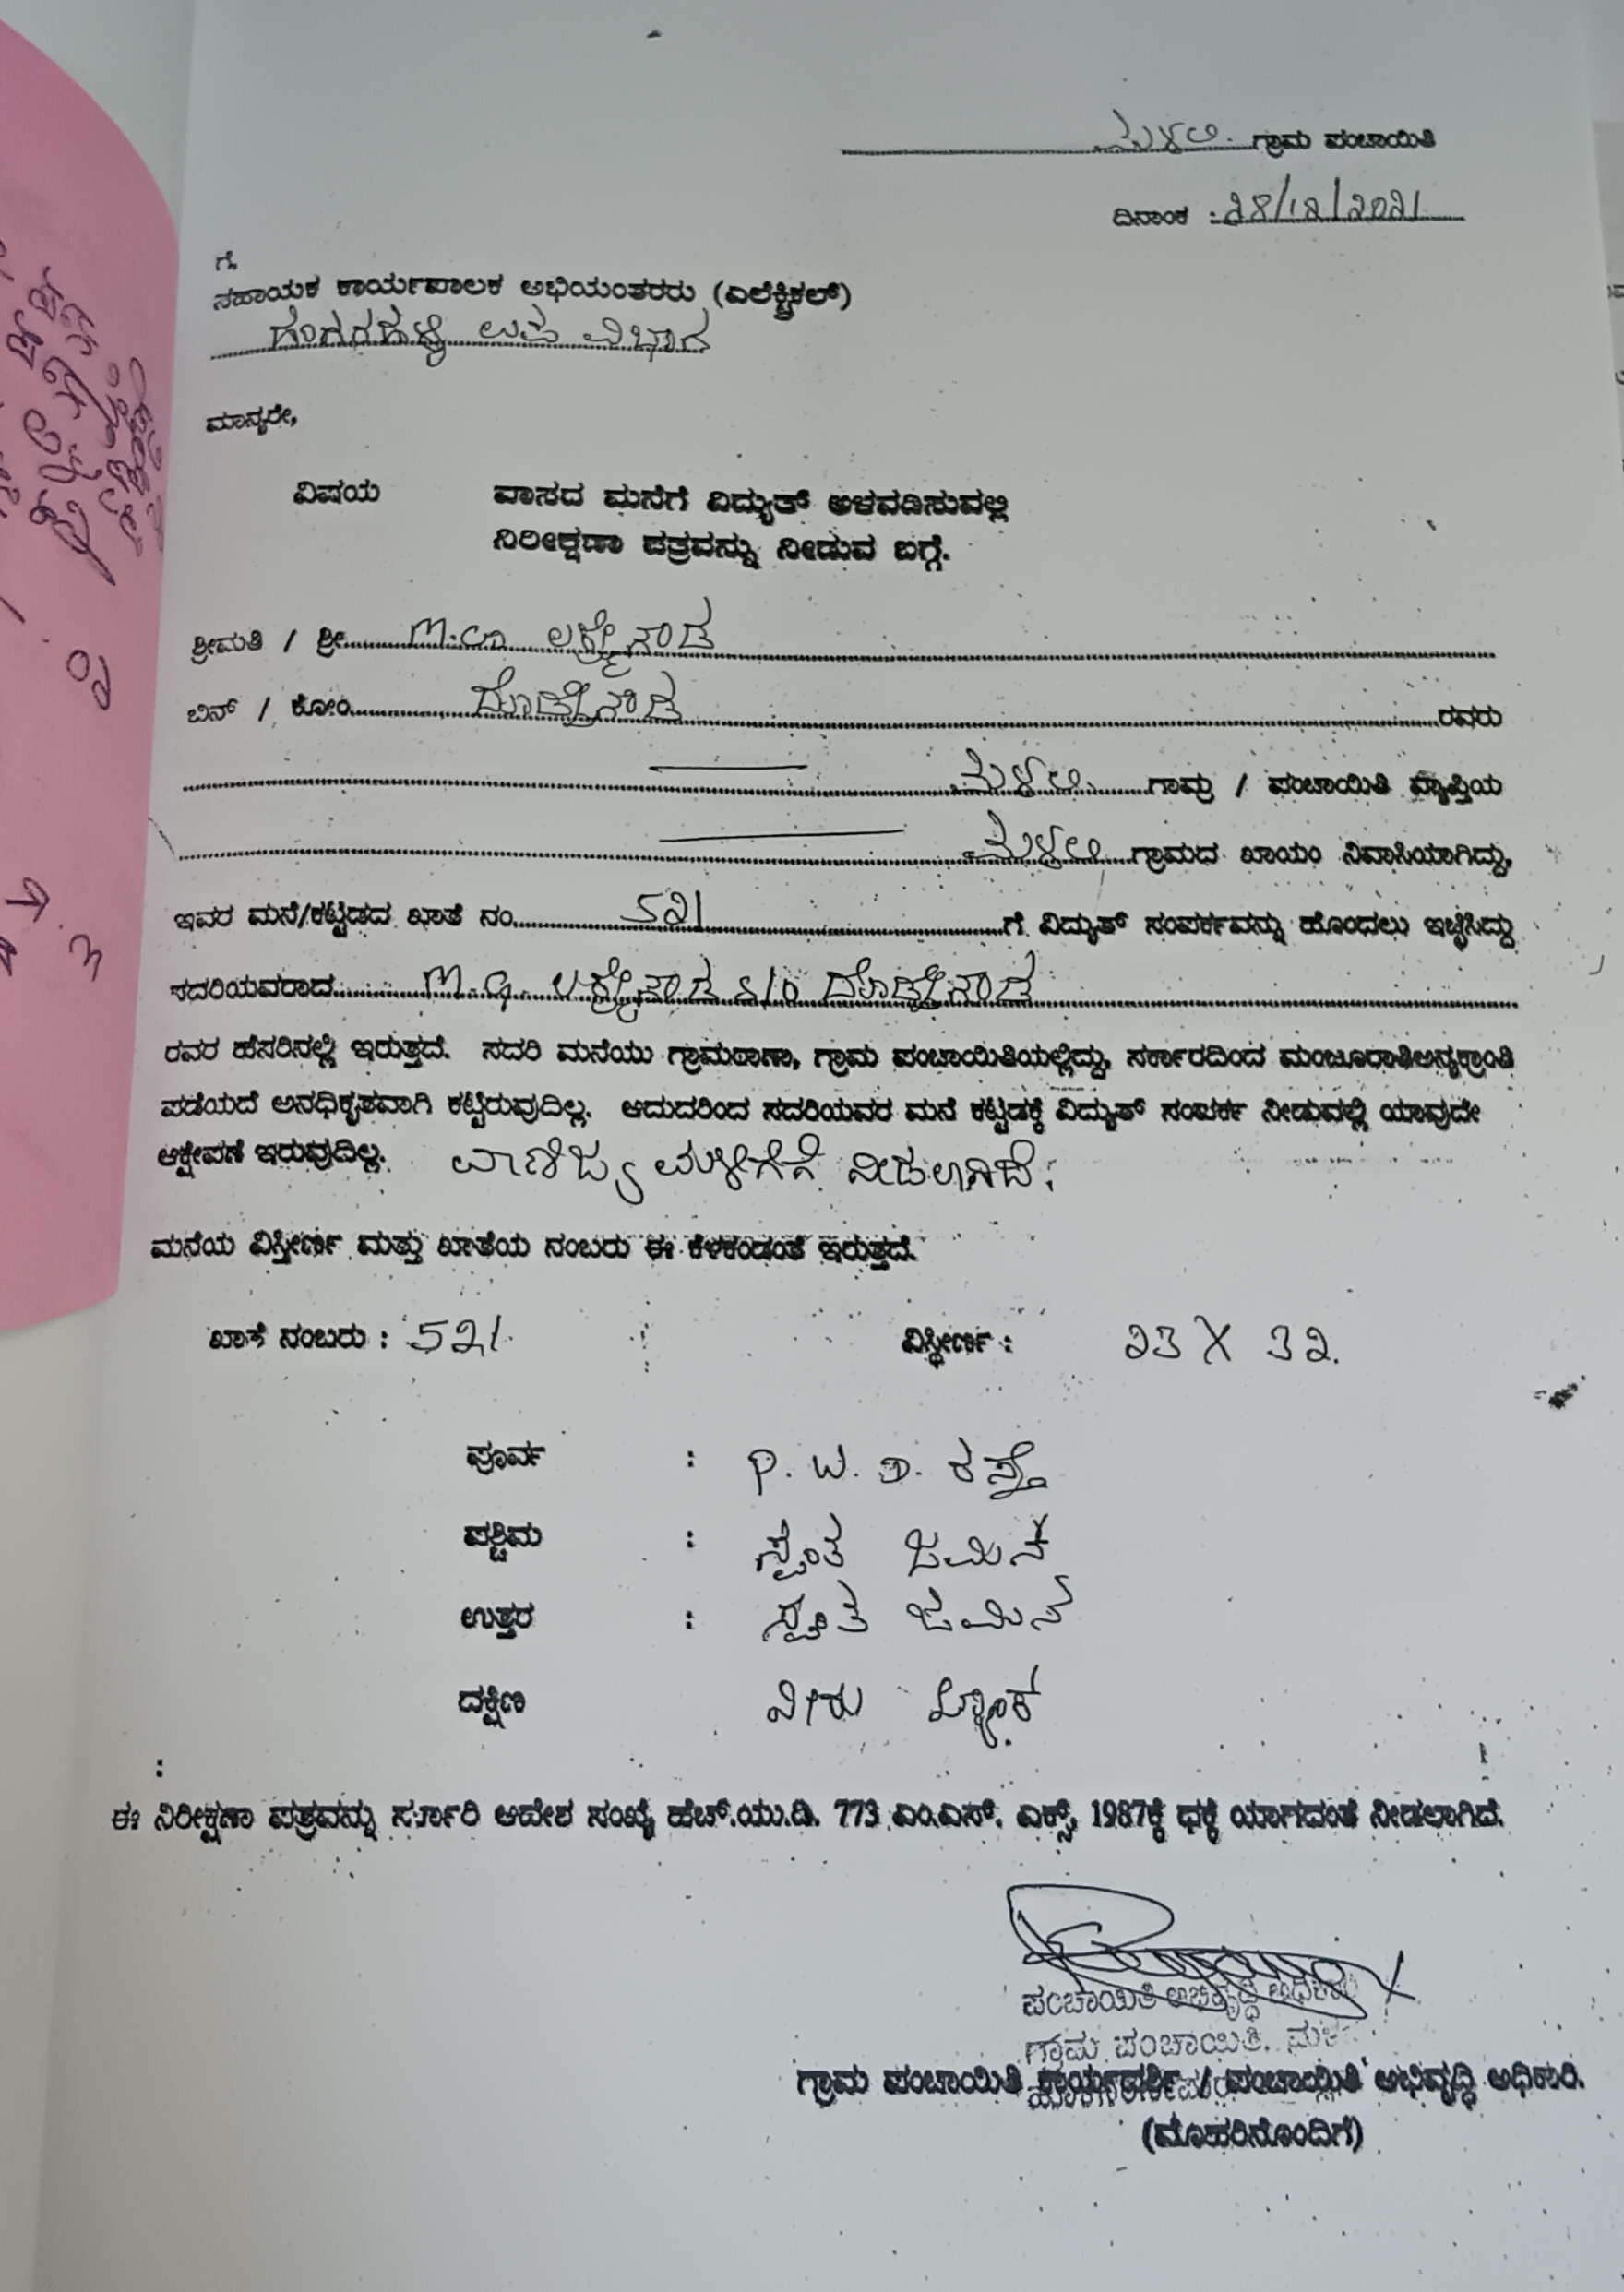 ಮಳಲಿ ಗ್ರಾಮ ಪಂಚಾಯಿತಿ
ದಿನಾಂಕ : 28/12/2021
ಗೆ,
ಸಹಾಯಕ ಕಾರ್ಯಪಾಲಕ ಅಭಿಯಂತರರು (ಎಲೆಕ್ಟ್ರಿಕಲ್)
ಉಪ ವಿಭಾಗ
ಮಾನ್ಯರೇ,
ವಿಷಯ ವಾಸದ ಮನೆಗೆ ವಿದ್ಯುತ್ ಅಳವಡಿಸುವಲ್ಲಿ
ನಿರೀಕ್ಷಣಾ ಪತ್ರವನ್ನು ನೀಡುವ ಬಗ್ಗೆ.
ಶ್ರೀಮತಿ / ಶ್ರೀ ಲಕ್ಷ್ಮೇಗೌಡ
ಬಿನ್ / ಕೋಂ ದೊಡ್ಡೇಗೌಡ ರವರು
ಮಳಲಿ ಗಾಮ್ರ / ಪಂಚಾಯಿತಿ ವ್ಯಾಪ್ತಿಯ
ಮಳಲಿ ಗ್ರಾಮದ ಖಾಯಂ ನಿವಾಸಿಯಾಗಿದ್ದು,
ಇವರ ಮನೆ/ಕಟ್ಟಡದ ಖಾತೆ ನಂ 521 ಗೆ ವಿದ್ಯುತ್ ಸಂಪರ್ಕವನ್ನು ಹೊಂದಲು ಇಚ್ಛಿಸಿದ್ದು
ಸದರಿಯವರಾದ M.G. ಲಕ್ಷ್ಮೇಗೌಡ S/o ದೊಡ್ಡೇಗೌಡ
ರವರ ಹೆಸರಿನಲ್ಲಿ ಇರುತ್ತದೆ. ಸದರಿ ಮನೆಯು ಗ್ರಾಮಠಾಣಾ, ಗ್ರಾಮ ಪಂಚಾಯಿತಿಯಲ್ಲಿದ್ದು, ಸರ್ಕಾರದಿಂದ ಮಂಜೂರಾತಿಅನ್ಯಕ್ರಾಂತಿ
ಪಡೆಯದೆ ಅನಧಿಕೃತವಾಗಿ ಕಟ್ಟಿರುವುದಿಲ್ಲ. ಆದುದರಿಂದ ಸದರಿಯವರ ಮನೆ ಕಟ್ಟಡಕ್ಕೆ ವಿದ್ಯುತ್ ಸಂಪರ್ಕ ನೀಡುವಲ್ಲಿ ಯಾವುದೇ
ಆಕ್ಷೇಪಣೆ ಇರುವುದಿಲ್ಲ. ವಾಣಿಜ್ಯ ಮಳಿಗೆಗೆ ನೀಡಲಾಗಿದೆ.
ಮನೆಯ ವಿಸ್ತೀರ್ಣ ಮತ್ತು ಖಾತೆಯ ನಂಬರು ಈ ಕೆಳಕಂಡಂತೆ ಇರುತ್ತದೆ.
ಖಾತೆ ನಂಬರು : 521 ವಿಸ್ತೀರ್ಣ : 23 X 32.
ಪೂರ್ವ : P. W. D. ರಸ್ತೆ
ಪಶ್ಚಿಮ : ಸ್ವಂತ ಜಮೀನ್
ಉತ್ತರ : ಸ್ವಂತ ಜಮೀನ
ದಕ್ಷಿಣ
:
ಈ ನಿರೀಕ್ಷಣಾ ಪತ್ರವನ್ನು ಸರ್ಕಾರಿ ಆದೇಶ ಸಂಖ್ಯೆ ಹೆಚ್.ಯು.ಡಿ. 773 ಎಂ.ಎನ್. ಎಕ್ಸ್, 1987ಕ್ಕೆ ಧಕ್ಕೆ ಯಾಗದಂತೆ ನೀಡಲಾಗಿದೆ.
ಪಂಚಾಯಿತಿ ಅಭಿವೃದ್ಧಿ ಅಧಿಕಾರಿ
ಗ್ರಾಮ ಪಂಚಾಯಿತಿ,
ಗ್ರಾಮ ಪಂಚಾಯಿತಿ ಕಾರ್ಯದರ್ಶಿ / ಪಂಚಾಯ್ತಿತಿ ಅಭಿವೃದ್ಧಿ ಅಧಿಕಾರಿ.
(ಮೊಹರಿನೊಂದಿಗೆ)